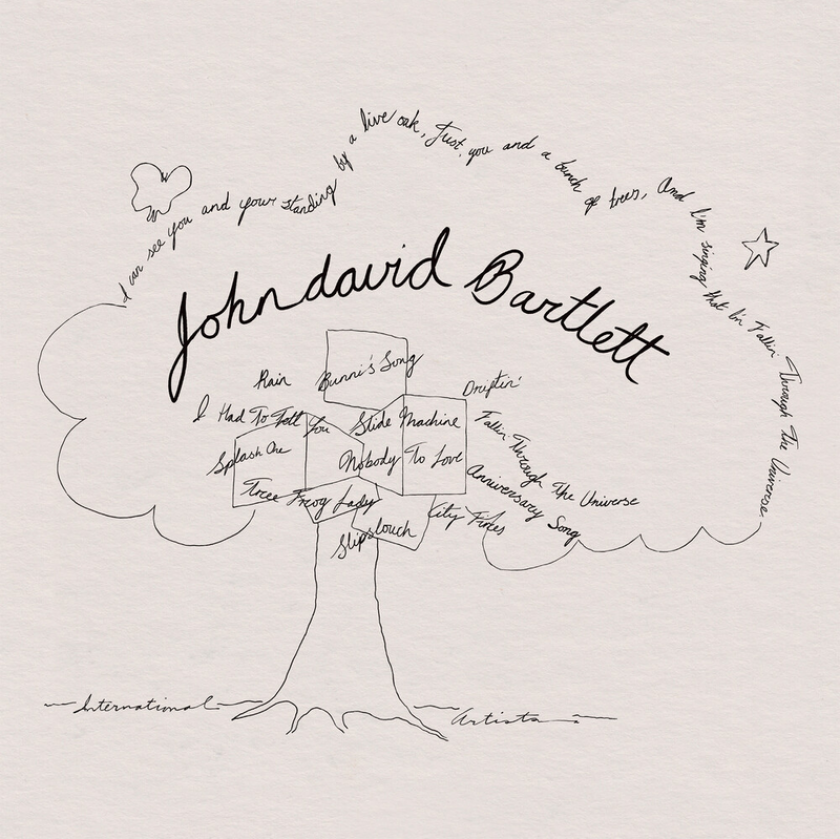 I can see you and your standing by a live oak, Just you and a bunch of trees, And I'm singing that I'm Fallin' Through The Universe.
Johndavid Bartlett
Bunni's Song
Rain
Driftin'
I Had To Tell You
Slide Machine
Fallin' Through The Universe
Splash One
Nobody To Love
Anniversary Song
Tree Frog Lady
City Fires
Slipslouch
International
Artists